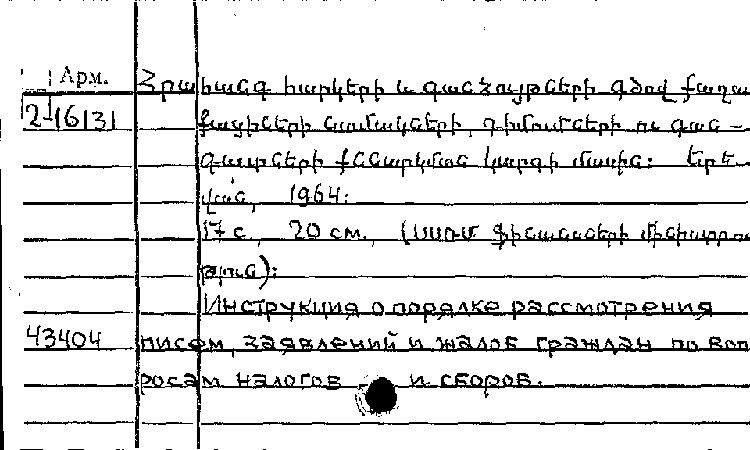 Арм. Հրահանգ հարկերի և գանձույթների գծով քաղա
2-16131 քացիների նամակների, դիմումների ու գան-
գատների քննարկման կարգի մասին: Երե
վան, 1964:
17 с., 20 см., (ՍՍՌՄ ֆինանսների մինիստրու
թյուն):
Инструкция о порядке рассмотрения
43404 писем, заявлений и жалоб граждан по воп
росам налогов и сборов.